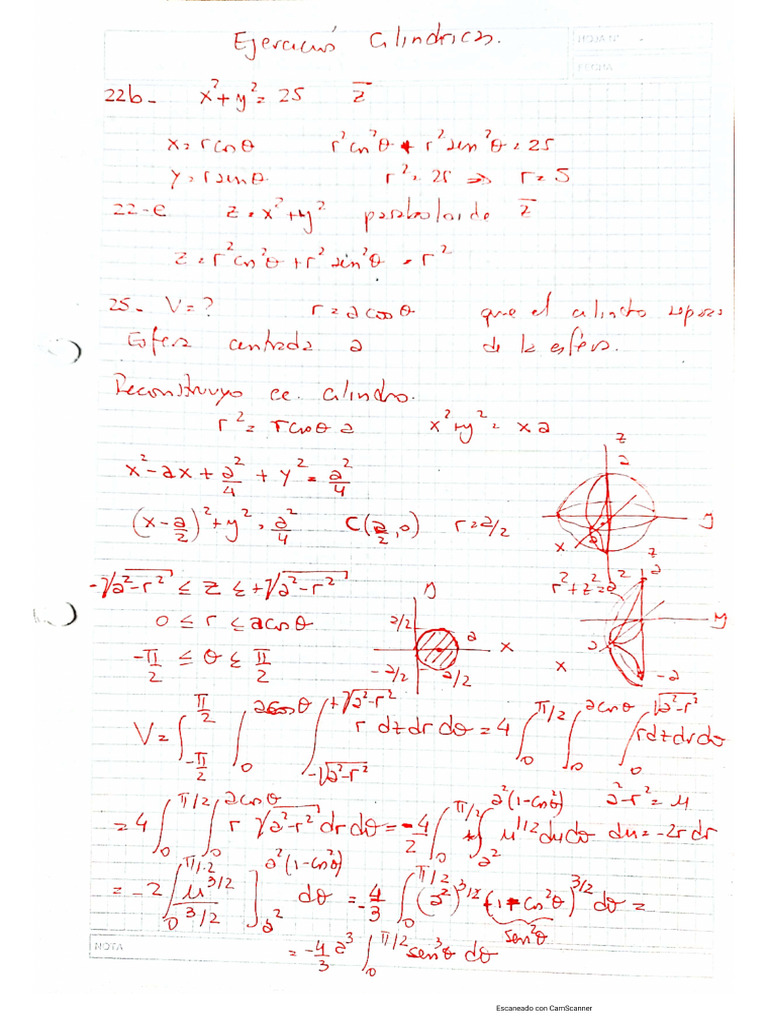 Ejercicios Cilindricas.
HOJA Nº
FECHA
22b- x²+y²=25 z̅
x=rcosθ r²cos²θ + r²sen²θ=25
y=rsenθ r²=25 ⇒ r=5
22-e z=x²+y² paraboloide z̅
z=r²cos²θ+r²sin²θ=r²
25- V=? r=acosθ que el cilindro separa
Esfera centrada a de la esfera.
Reconstruyo ec. cilindro.
r²=rcosθa x²+y²=xa
x²-ax+a²/4+y²=a²/4
(x-a/2)²+y²=a²/4 C(a/2,0) r=a/2
z a y x
-√(a²-r²) ≤ z ≤ +√(a²-r²)
r²+z²=a²
z a y a x -a
0 ≤ r ≤ acosθ
-π/2 ≤ θ ≤ π/2
y a/2 a x -a/2 a/2
V=∫_{-π/2}^{π/2} ∫_0^{acosθ} ∫_{-√(a²-r²)}^{+√(a²-r²)} r dz dr dθ = 4∫_0^{π/2} ∫_0^{acosθ} ∫_0^{√(a²-r²)} r dz dr dθ
=4∫_0^{π/2} ∫_0^{acosθ} r √(a²-r²) dr dθ = -4/2 ∫_0^{π/2} ∫_{a²}^{a²(1-cos²θ)} u^{1/2} du dθ a²-r²=u du=-2rdr
=-2∫_0^{π/2} u^{3/2}/(3/2) ]_{a²}^{a²(1-cos²θ)} dθ = -4/3 ∫_0^{π/2} (a²)^{3/2} (1-cos²θ)^{3/2} dθ =
sen²θ
=-4/3 a³ ∫_0^{π/2} sen³θ dθ
NOTA
Escaneado con CamScanner